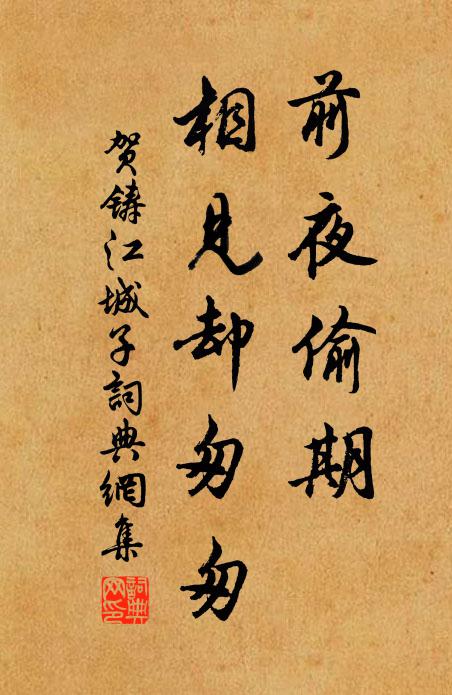 前夜偷期
相見却匆匆
贺鑄江城子詞典網集
詞典网印